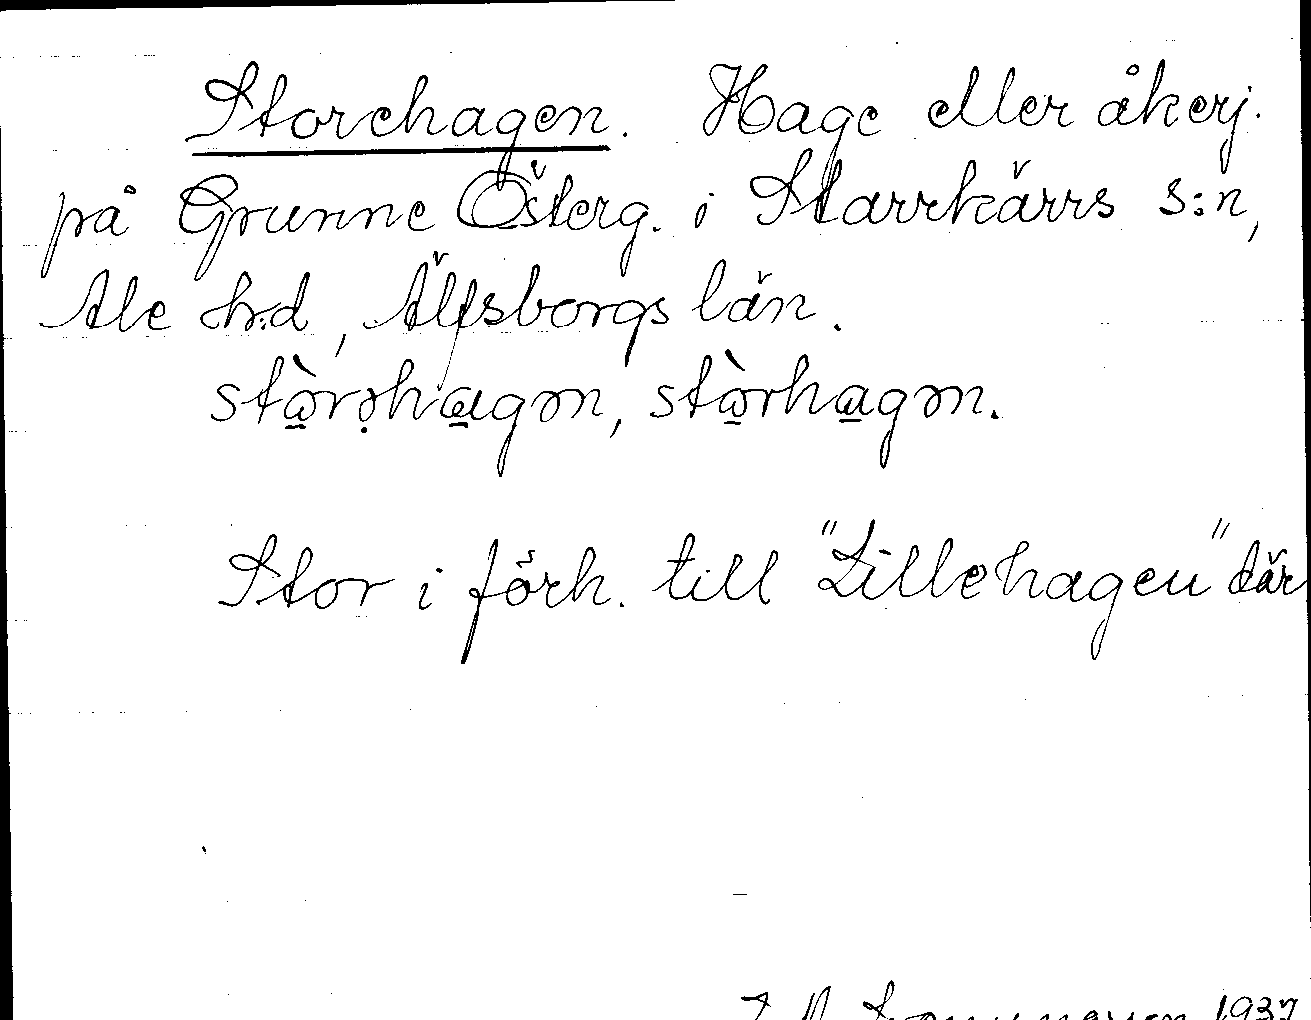 Storehagen. Hage eller åkerj.
på Grunne Österg. i Starrkärrs s:n,
Ale h:d, Älfsborgs län.
stòrəhagən, stòrhagən.
Stor i förh. till "Lillehagen" där
1937